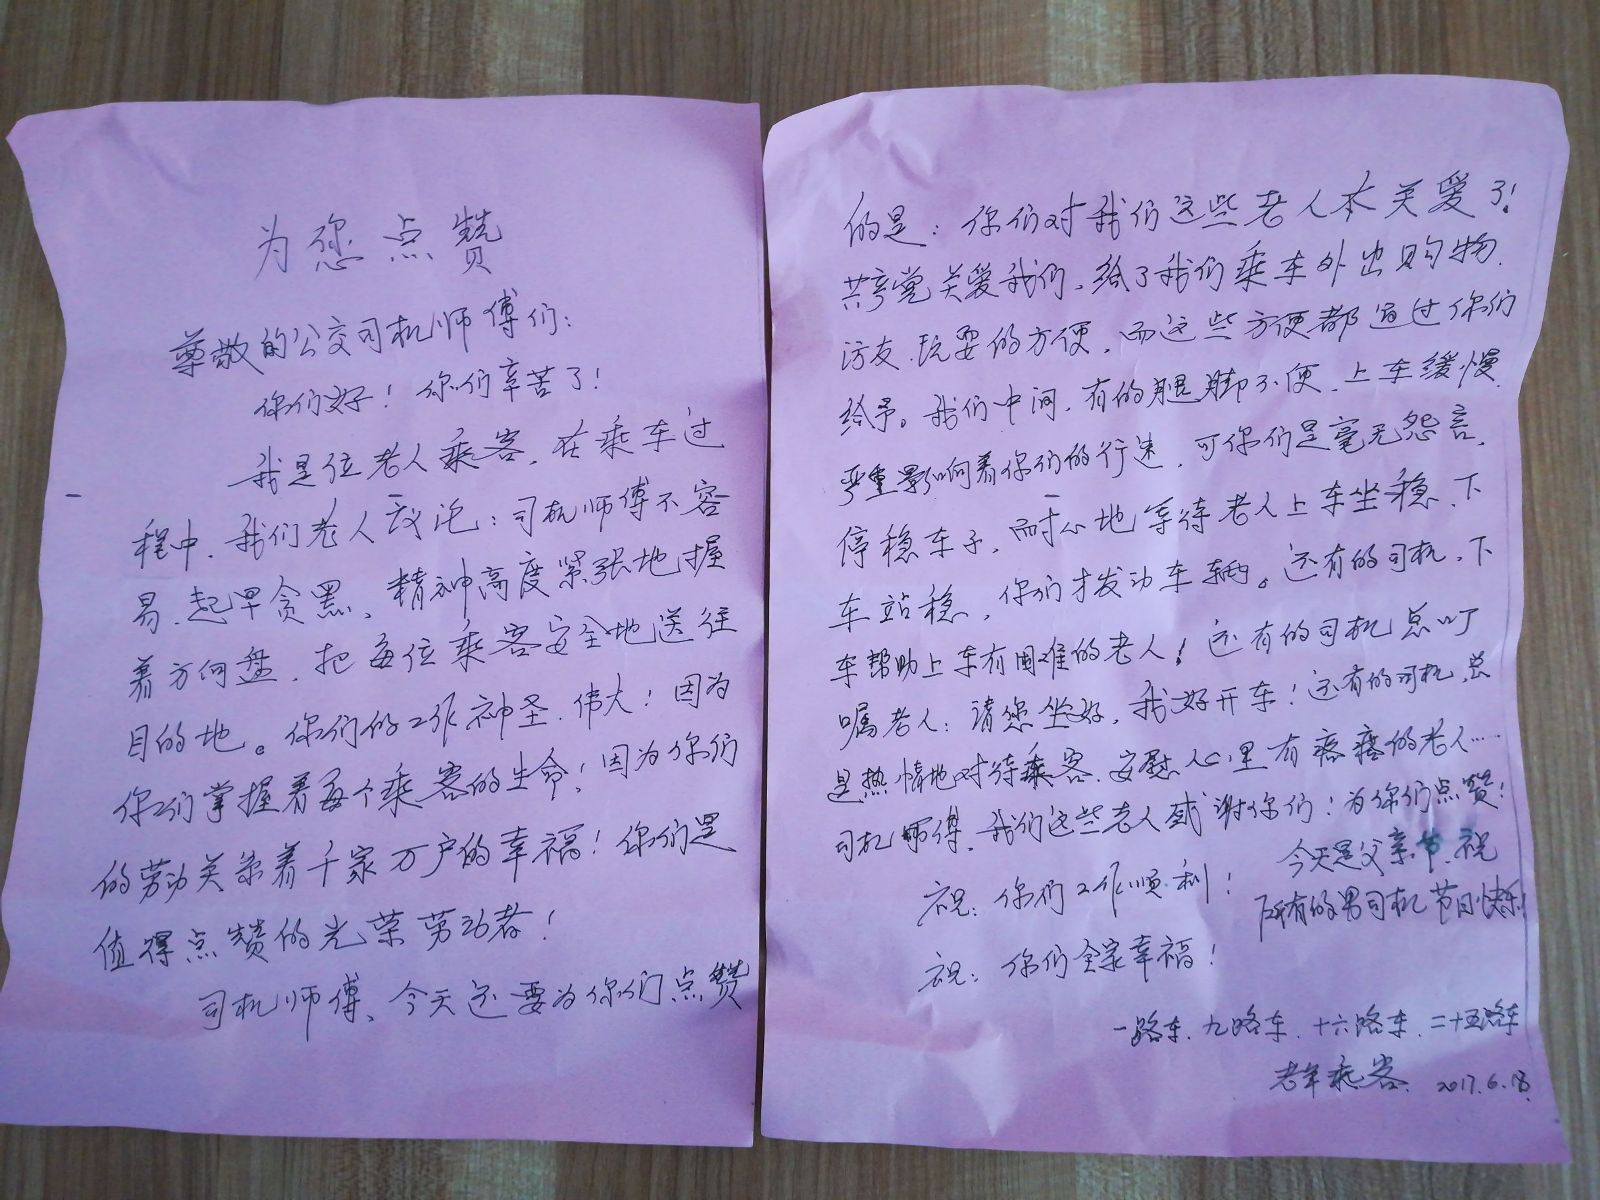 为您点赞
尊敬的公交司机师傅们：
你们好！你们辛苦了！
我是位老人乘客，在乘车过
程中，我们老人议论：司机师傅不容
易，起早贪黑、精神高度紧张地握
着方向盘，把每位乘客安全地送往
目的地。你们的工作神圣、伟大！因为
你们掌握着每个乘客的生命！因为你们
的劳动关系着千家万户的幸福！你们是
值得点赞的光荣劳动者！
司机师傅、今天还要为你们点赞
的是：你们对我们这些老人太关爱了！
共产党关爱我们，给了我们乘车外出购物、
访友、玩耍的方便，而这些方便都通过你们
给予。我们中间，有的腿脚不便，上车缓慢，
严重影响着你们的行速，可你们是毫无怨言，
停稳车子，耐心地等待老人上车坐稳、下
车站稳，你们才发动车辆。还有的司机，下
车帮助上车有困难的老人！还有的司机总叮
嘱老人：请您坐好，我好开车！还有的司机，总
是热情地对待乘客、安慰心里有疙瘩的老人……
司机师傅，我们这些老人感谢你们！为你们点赞！
祝：你们工作顺利！
今天是父亲节，祝
所有的男司机节日快乐！
祝：你们全家幸福！
一路车、九路车、十六路车、二十五路车
老年乘客 2017.6.18